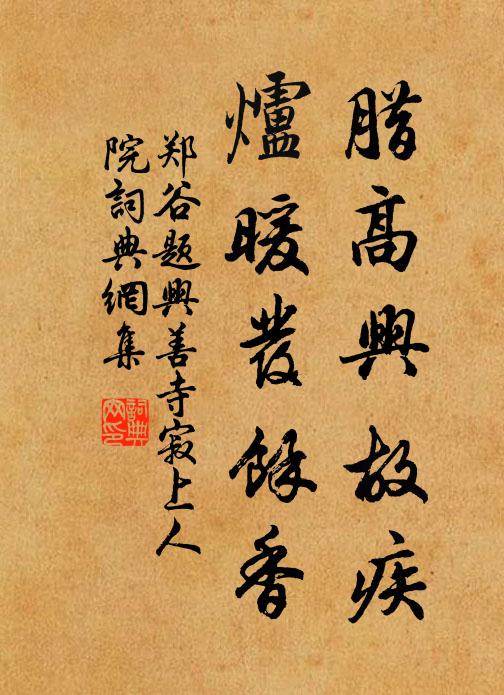 腊高興故疾
爐暖發餘香
郑谷题興善寺寂上人
院詞典網集
詞典
网印